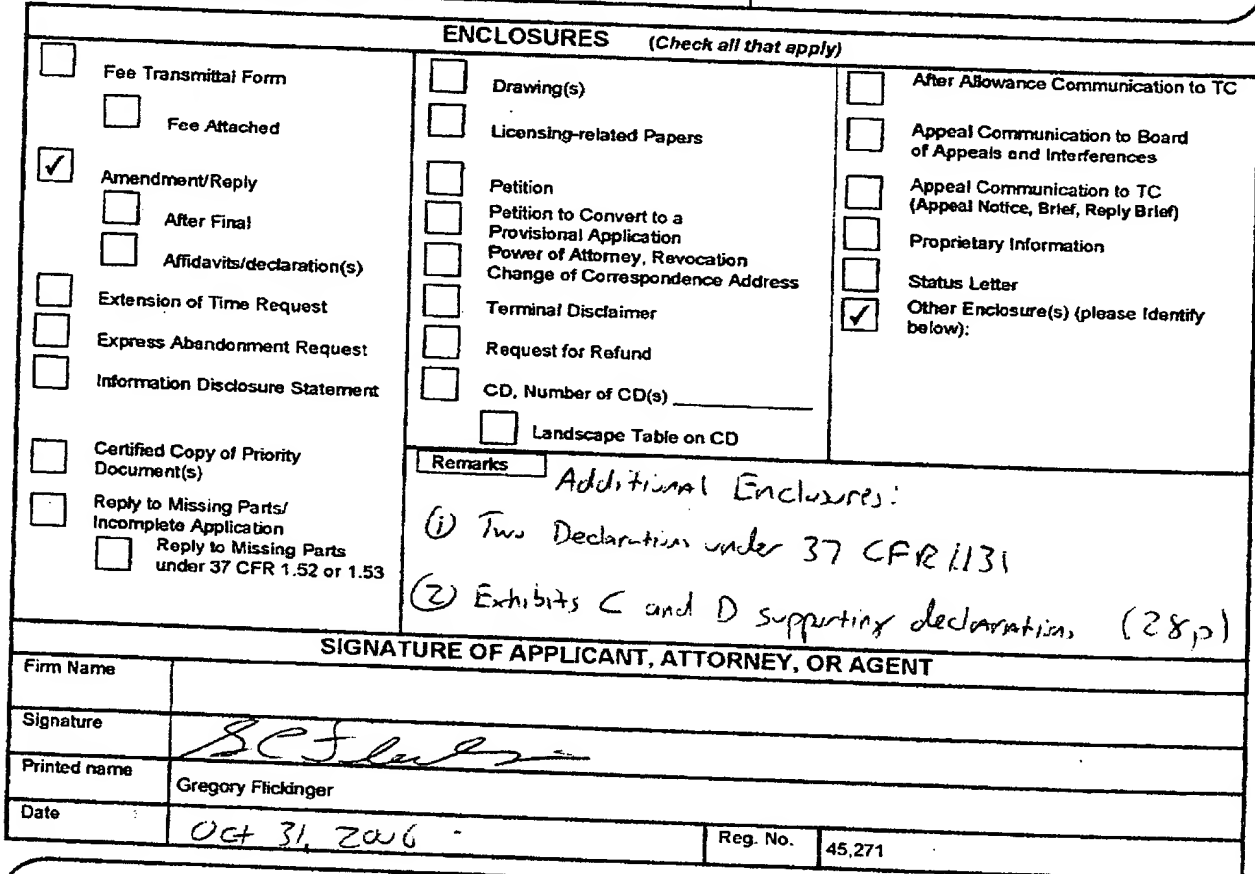 ENCLOSURES (Check all that apply)
Fee Transmittal Form
Fee Attached
✓ Amendment/Reply
After Final
Affidavits/declaration(s)
Extension of Time Request
Express Abandonment Request
Information Disclosure Statement
Certified Copy of Priority
Document(s)
Reply to Missing Parts/
Incomplete Application
Reply to Missing Parts
under 37 CFR 1.52 or 1.53
Drawing(s)
Licensing-related Papers
Petition
Petition to Convert to a
Provisional Application
Power of Attorney, Revocation
Change of Correspondence Address
Terminal Disclaimer
Request for Refund
CD, Number of CD(s) ___________
Landscape Table on CD
After Allowance Communication to TC
Appeal Communication to Board
of Appeals and Interferences
Appeal Communication to TC
(Appeal Notice, Brief, Reply Brief)
Proprietary Information
Status Letter
✓ Other Enclosure(s) (please Identify
below):
Remarks
Additional Enclosures:
(1) Two Declarations under 37 CFR 1.131
(2) Exhibits C and D supporting declarations (28p)
SIGNATURE OF APPLICANT, ATTORNEY, OR AGENT
Firm Name
Signature
Printed name
Gregory Flickinger
Date
Oct 31, 2006
Reg. No.
45,271